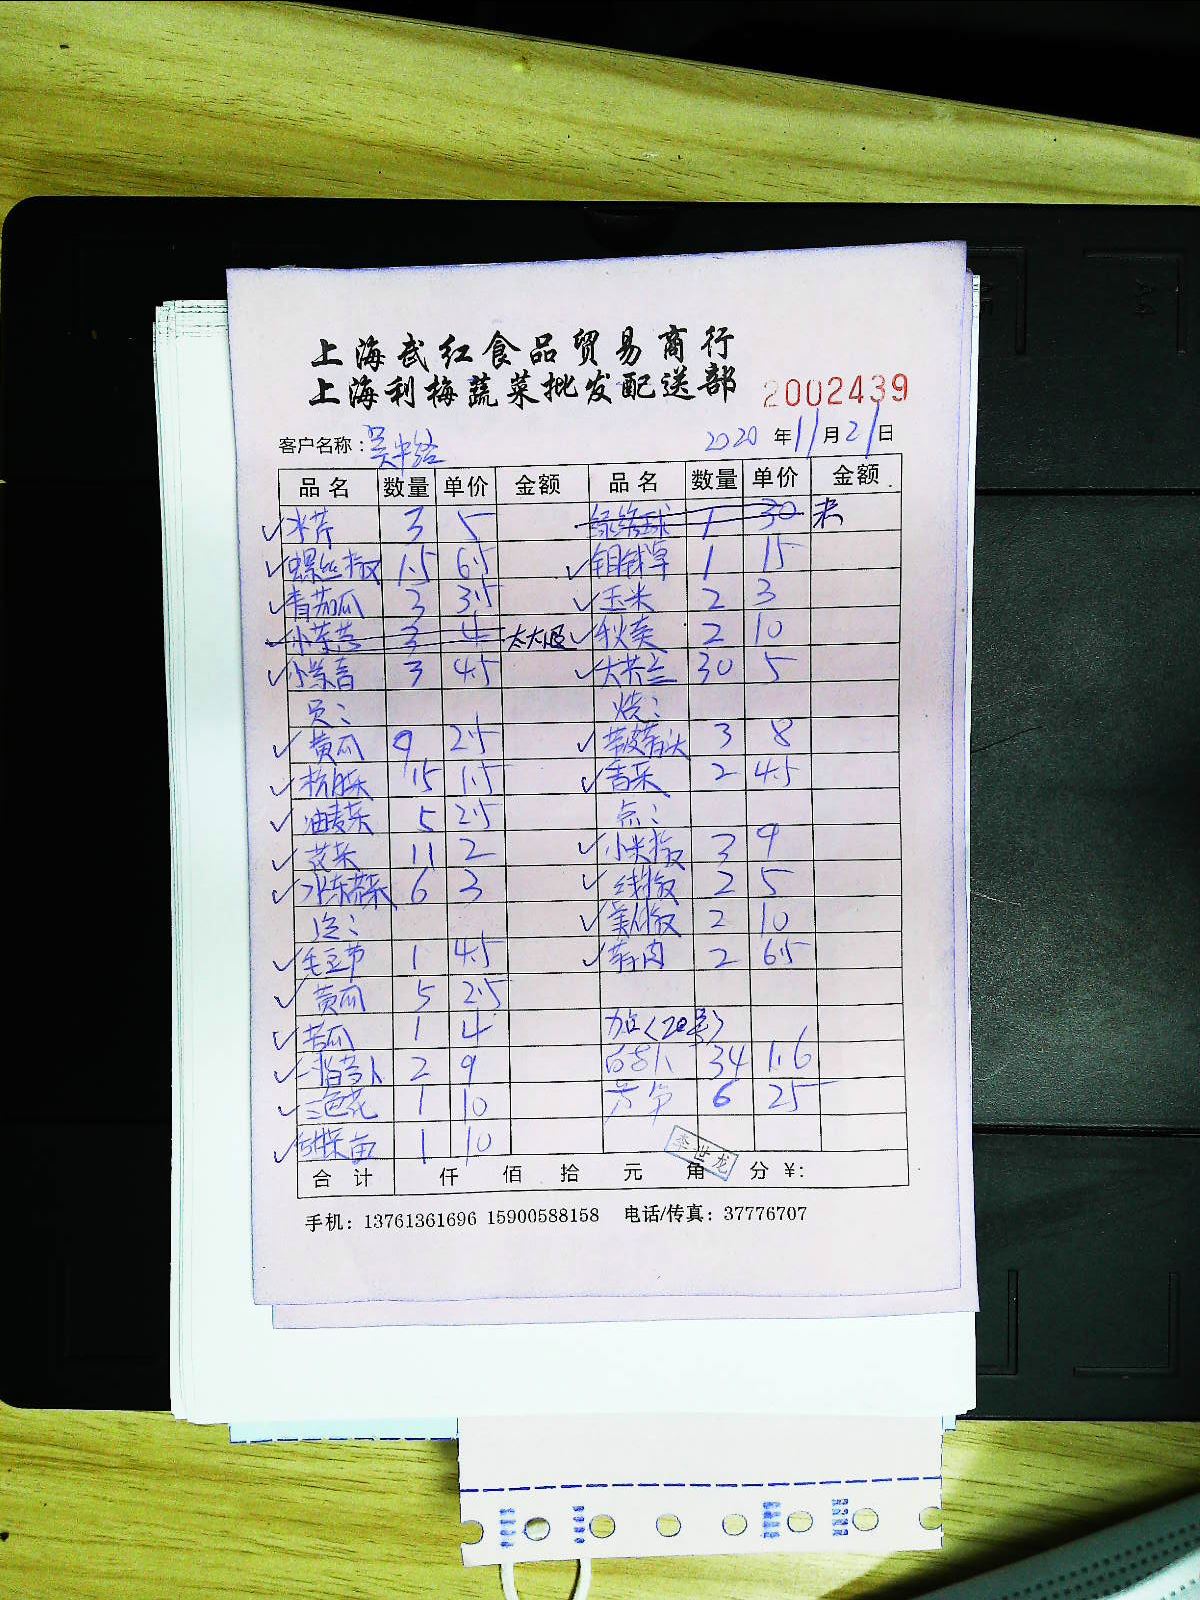 上海武红食品贸易商行
上海利梅蔬菜批发配送部 2002439
客户名称：吴中路 2020年11月21日
品名 数量 单价 金额 品名 数量 单价 金额
✓水芹 3 5 1 30 未
✓螺丝椒 1.5 6.5 ✓铜钱草 1 15
✓青茄瓜 3 3.5 ✓玉米 2 3
✓小茶葱 3 4 太大退 ✓秋葵 2 10
✓ 3 4.5 ✓大芥兰 30 5
烧：
✓黄瓜 9 2.5 ✓带皮 3 8
✓杭白菜 15 1.5 ✓香菜 2 4.5
✓油麦菜 5 2.5 点：
✓花菜 11 2 ✓小米椒 3 9
✓水东芥菜 6 3 ✓线椒 2 5
✓美人椒 2 10
✓毛豆节 1 4.5 ✓ 2 6.5
✓黄瓜 5 2.5
✓苦瓜 1 4 加点（20号）
✓ 2 9 34 1.6
✓三色花 1 10 6 25
✓ 苗 1 10
合计 仟 佰 拾 元 角 分 ¥：
李世龙
手机：13761361696 15900588158 电话/传真：37776707